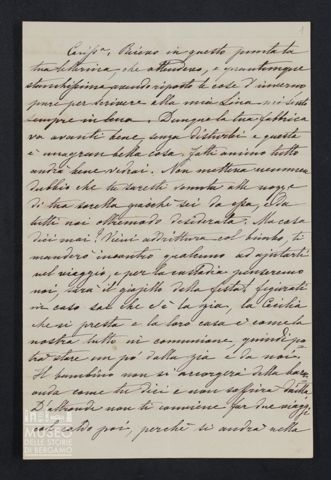 1
Cariss.a, Ricevo in questo punto la
tua letterina, che attendevo, e quantunque
stanchissima avendo riposto le cose d'inverno
pure per scrivere alla mia Lina mi sento
sempre in lena. Dunque la tua fabbrica
va avanti bene, senza disturbi e questa
è una gran bella cosa, fatti animo tutto
andrà bene vedrai. Non mettevo nemmeno
dubbio che tu saresti venuta alle nozze
di tua sorella giacchè sei da essa, e da
tutti noi oltremodo desiderata. Ma cosa
dici mai? Vieni addirittura col bimbo, ti
manderò incontro qualcuno ad ajutarti
nel viaggio, e per la custodia penseremo
noi, sarà il giojello della festa, figurati
in caso sai che c'è la zia, la Cecilia
che si presta e la loro casa è come la
nostra tutto in comunione, quindi po
trà stare un po' dalla zia e da noi.
Il bambino non si accorgerà della bara
onda come tu dici e non soffrirà
D'altronde non ti conviene far due viaggi
col caldo poi, perchè si andrà nella
MUSEO
DELLE STORIE
DI BERGAMO